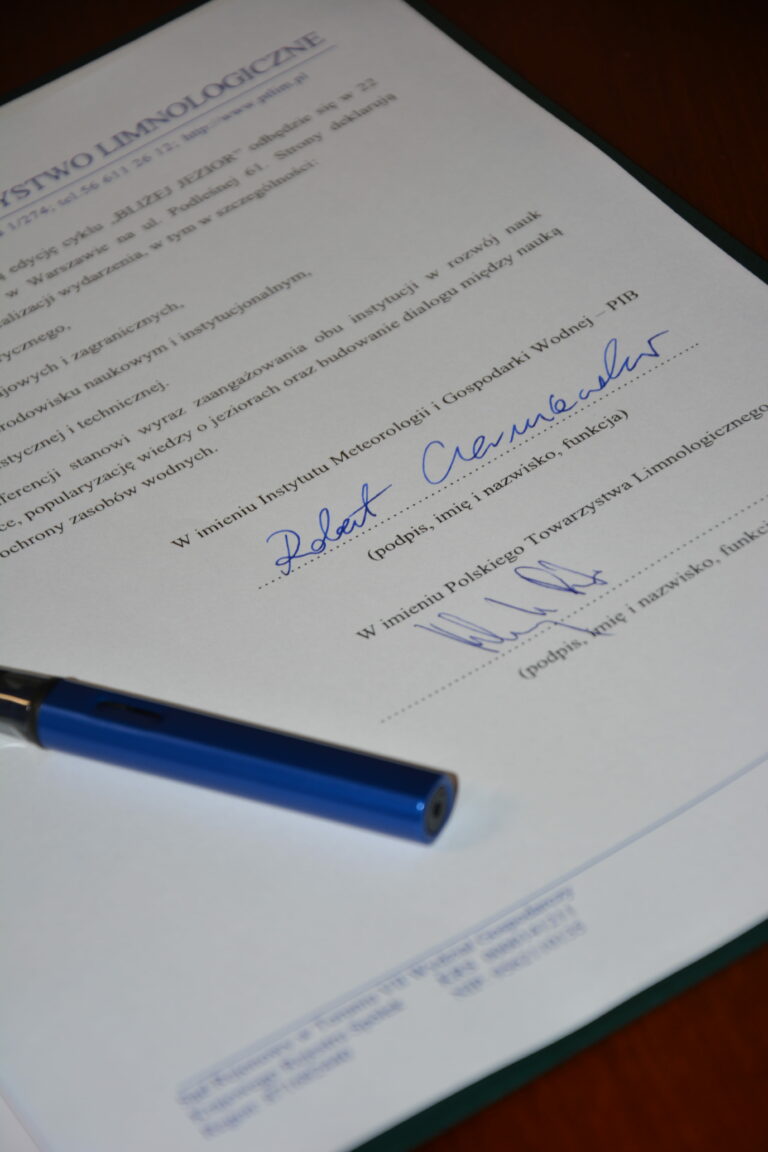 YSTWO LIMNOLOGICZNE
1/274; tel.56 611 26 12; http://www.ptlim.pl
edycję cyklu „BLIŻEJ JEZIOR" odbędzie się w 22
w Warszawie na ul. Podleśnej 61. Strony deklarują
alizacji wydarzenia, w tym w szczególności:
ycznego,
jowych i zagranicznych,
rodowisku naukowym i instytucjonalnym,
stycznej i technicznej.
ferencji stanowi wyraz zaangażowania obu instytucji w rozwój nauk
ce, popularyzację wiedzy o jeziorach oraz budowanie dialogu między nauką
ochrony zasobów wodnych.
W imieniu Instytutu Meteorologii i Gospodarki Wodnej – PIB
Robert Czerniawski
(podpis, imię i nazwisko, funkcja)
W imieniu Polskiego Towarzystwa Limnologicznego
(podpis, imię i nazwisko, funkcj